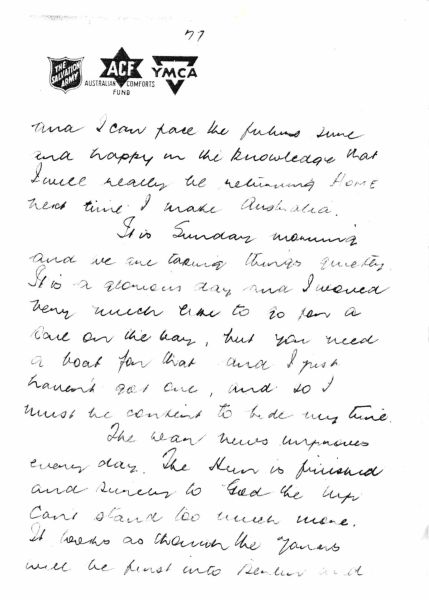 77
THE SALVATION ARMY
ACF
AUSTRALIAN COMFORTS FUND
YMCA
and I can face the future sure
and happy in the knowledge that
I will really be returning HOME
next time I make Australia.
It is Sunday morning
and we are taking things quietly
It is a glorious day and I would
very much like to go for a
sail on the bay, but you need
a boat for that and I just
haven't got one, and so I
must be content to bide my time.
The war news improves
every day. The Hun is finished
and surely to God the Nip
Cant stand too much more.
It looks as though the Yanks
will be first into Berlin and